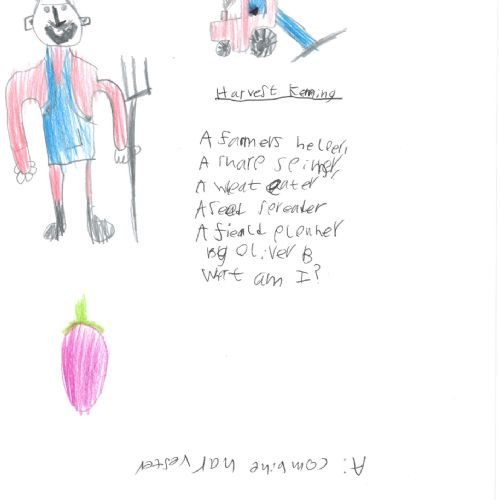 Harvest Kenning
A farmers helper,
A sharp spinner,
A weat eater
A seed spreater
A fieald plouher
By Oliver B
What am I?
A: combine harvester